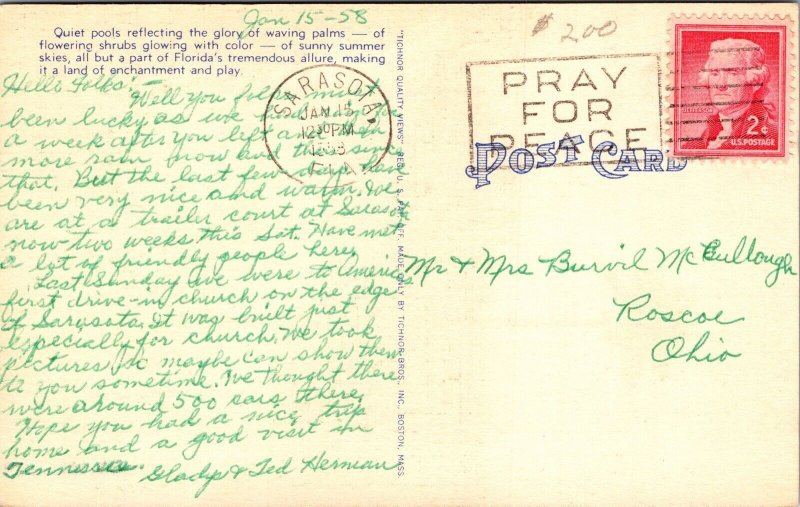 Jan 15-58
$2.00
Quiet pools reflecting the glory of waving palms — of
flowering shrubs glowing with color — of sunny summer
skies, all but a part of Florida's tremendous allure, making
it a land of enchantment and play.
Hello Folks:-
Well you folks must
been lucky as we
a week after you left
more rain now and then since
that. But the last few days have
been very nice and warm. We
are at a trailer court at Sarasota
now two weeks this Sat. Have met
a lot of friendly people here.
Last Sunday we were to America's
first drive-in church on the edge
of Sarasota. It was built just
especially for church. We took
pictures so maybe can show them
to you sometime. We thought there
were around 500 cars there.
Hope you had a nice trip
home and a good visit in
Tennessee.
Gladys & Ted Herman
"TICHNOR QUALITY VIEWS" REG. U. S. PAT. OFF. MADE ONLY BY TICHNOR BROS. INC., BOSTON, MASS.
SARASOTA
JAN 15
12 30 PM
1958
FLA.
PRAY
FOR
PEACE
POST CARD
JEFFERSON
2¢
U.S. POSTAGE
Mr & Mrs Burvil McCullough
Roscoe
Ohio